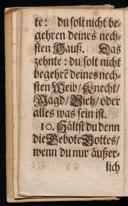 te: du solt nicht be-
gehren deines nech-
sten Hauß. Das
zehnte: du solt nicht
begehrẽ deines nech-
sten Weib/Knecht/
Magd/Vieh/oder
alles was sein ist.
10. Hältst du denn
die Gebote Gottes/
wenn du nur äußer-
lich